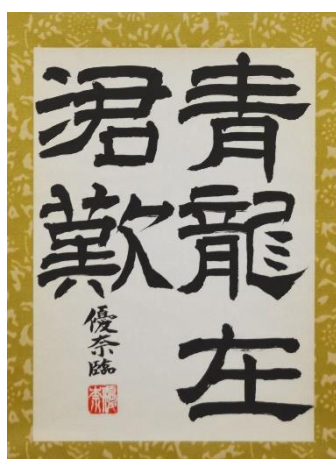 青龍在
涒歎
優奈臨